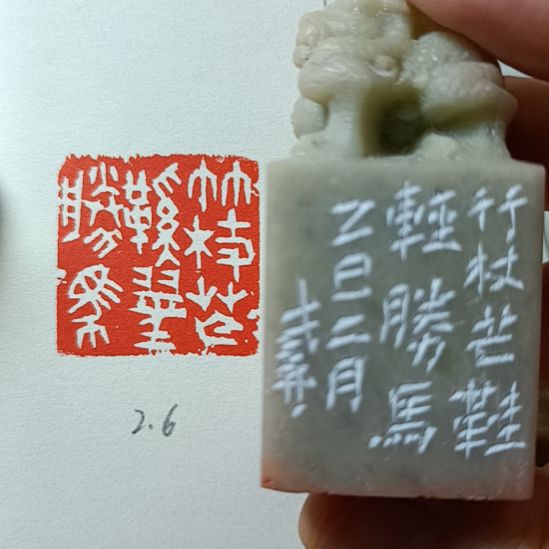 竹杖芒
鞋輕
勝馬
2.6
竹杖芒鞋
輕勝馬
乙巳二月